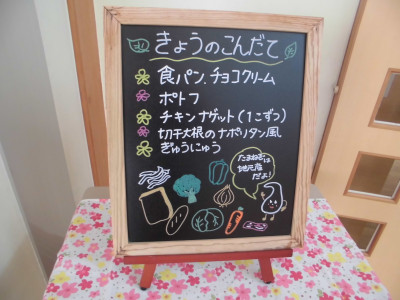 きょうのこんだて
食パン、チョコクリーム
ポトフ
チキンナゲット(1こずつ)
切干大根のナポリタン風
ぎゅうにゅう
たまねぎは
地元産
だよ!